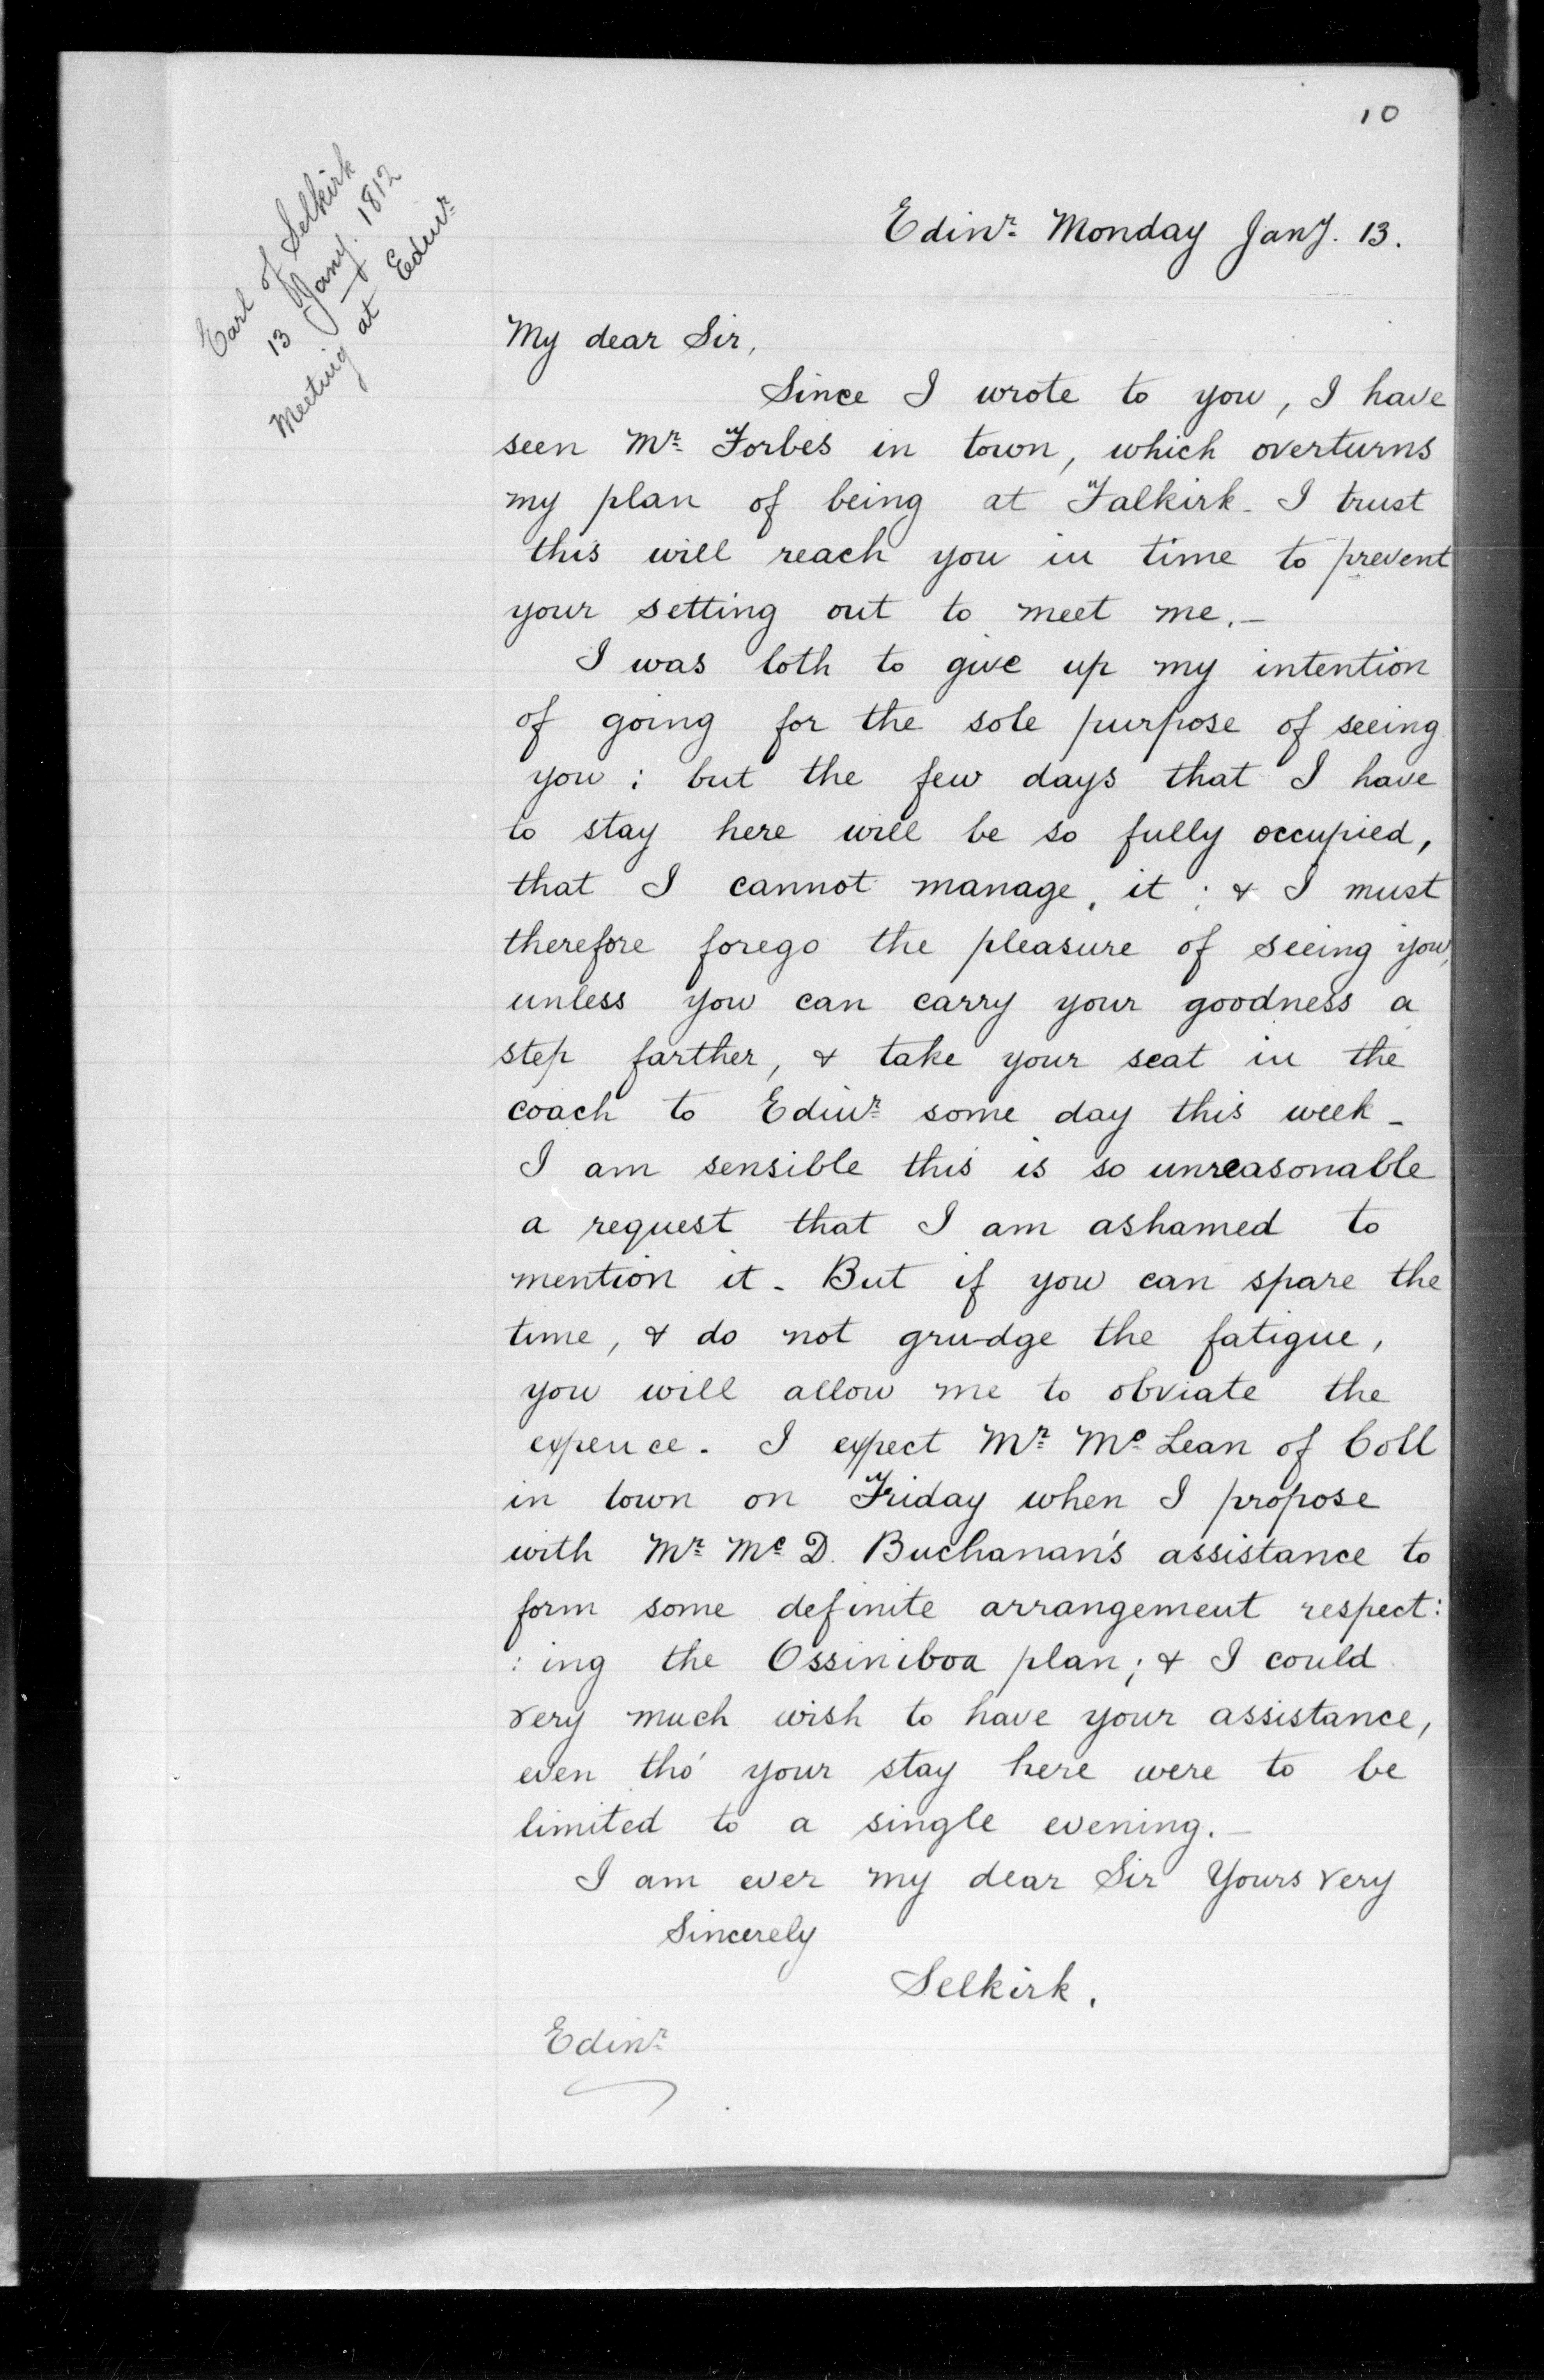 10
Earl of Selkirk
13 Jany. 1812
Meeting at Edinr.
Edinr. Monday Jany. 13.
My dear Sir,
Since I wrote to you, I have
seen Mr. Forbes in town, which overturns
my plan of being at Falkirk - I trust
this will reach you in time to prevent
your setting out to meet me. -
I was loth to give up my intention
of going for the sole purpose of seeing
you ; but the few days that I have
to stay here will be so fully occupied,
that I cannot manage it ; & I must
therefore forego the pleasure of seeing you,
unless you can carry your goodness a
step farther, & take your seat in the
coach to Edinr. some day this week -
I am sensible this is so unreasonable
a request that I am ashamed to
mention it - But if you can spare the
time, & do not grudge the fatigue,
you will allow me to obviate the
expence. I expect Mr. Mc. Lean of Coll
in town on Friday when I propose
with Mr. Mc. D. Buchanan's assistance to
form some definite arrangement respect:
: ing the Ossiniboa plan; & I could
very much wish to have your assistance,
even tho' your stay here were to be
limited to a single evening. -
I am ever my dear Sir Yours very
Sincerely
Selkirk.
Edinr.